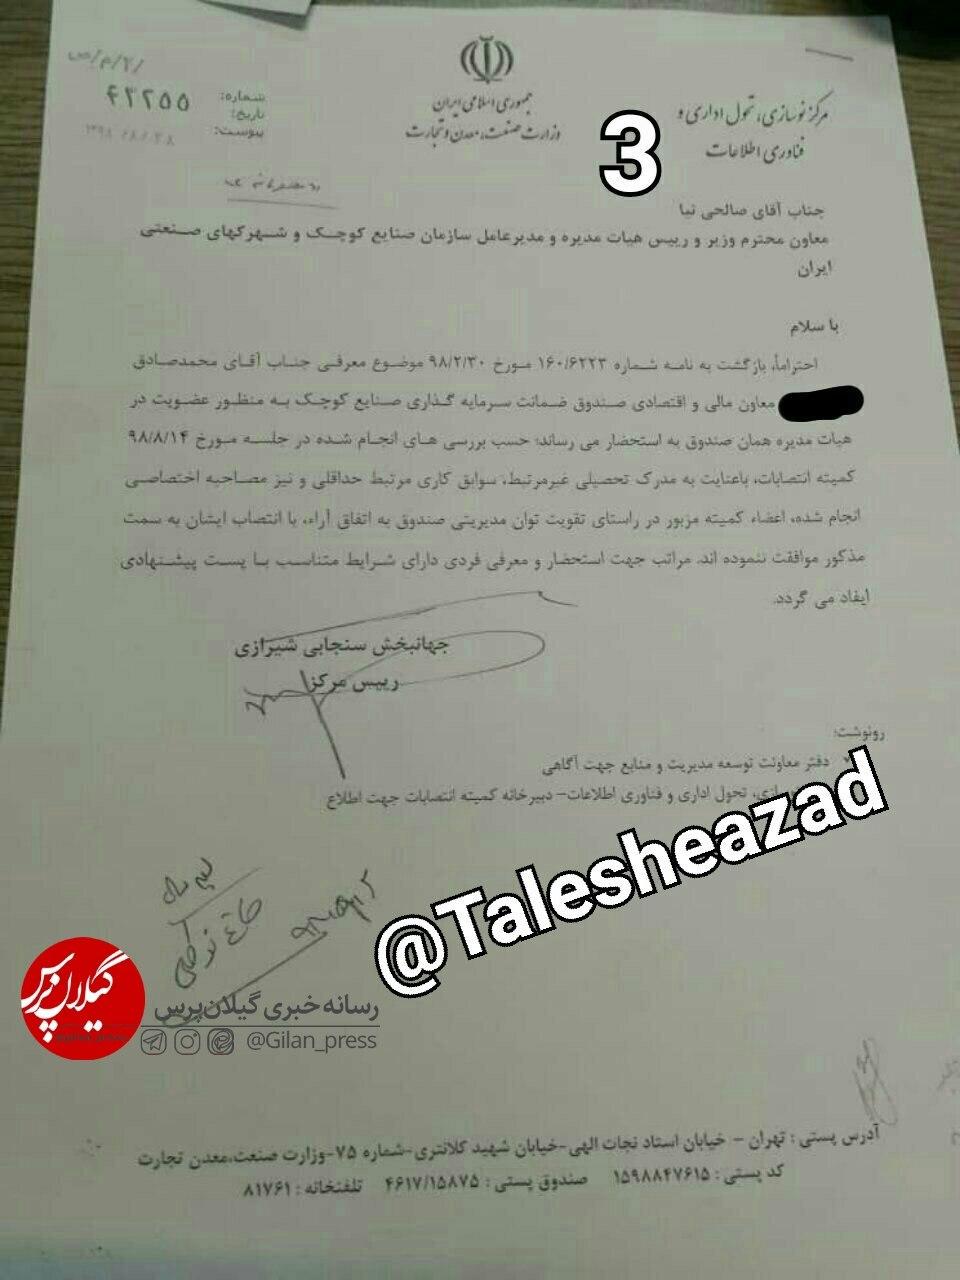 جمهوری اسلامی ایران
وزارت صنعت، معدن و تجارت
مرکز نوسازی، تحول اداری و
فناوری اطلاعات
شماره:
۴۳۲۵۵
تاریخ:
پیوست:
3
جناب آقای صالحی نیا
معاون محترم وزیر و رییس هیات مدیره و مدیرعامل سازمان صنایع کوچک و شهرکهای صنعتی
ایران
با سلام
احتراماً، بازگشت به نامه شماره ۱۶۰/۶۲۲۳ مورخ ۹۸/۲/۳۰ موضوع معرفی جناب آقای محمدصادق
معاون مالی و اقتصادی صندوق ضمانت سرمایه گذاری صنایع کوچک به منظور عضویت در
هیات مدیره همان صندوق به استحضار می رساند؛ حسب بررسی های انجام شده در جلسه مورخ ۹۸/۸/۱۴
کمیته انتصابات، باعنایت به مدرک تحصیلی غیرمرتبط، سوابق کاری مرتبط حداقلی و نیز مصاحبه اختصاصی
انجام شده، اعضاء کمیته مزبور در راستای تقویت توان مدیریتی صندوق به اتفاق آراء، با انتصاب ایشان به سمت
مذکور موافقت ننموده اند. مراتب جهت استحضار و معرفی فردی دارای شرایط متناسب با پست پیشنهادی
ایفاد می گردد.
جهانبخش سنجابی شیرازی
رییس مرکز
رونوشت:
دفتر معاونت توسعه مدیریت و منابع جهت آگاهی
تحول اداری و فناوری اطلاعات- دبیرخانه کمیته انتصابات جهت اطلاع
@Talesheazad
گیلان پرس
رسانه خبری گیلان‌پرس
@Gilan_press
آدرس پستی : تهران - خیابان استاد نجات الهی-خیابان شهید کلانتری-شماره ۷۵-وزارت صنعت،معدن تجارت
کد پستی : ۱۵۹۸۸۴۷۶۱۵ صندوق پستی : ۴۶۱۷/۱۵۸۷۵ تلفنخانه : ۸۱۷۶۱